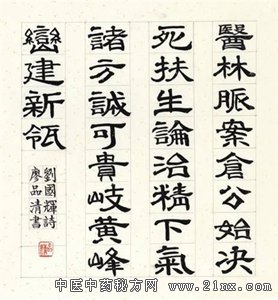 醫林脈案倉公始決
死扶生論治精下氣
諸方誠可貴岐黄峰
巒建新瓴
劉國輝詩
廖品清書
中医中药秘方网
www.21nx.com